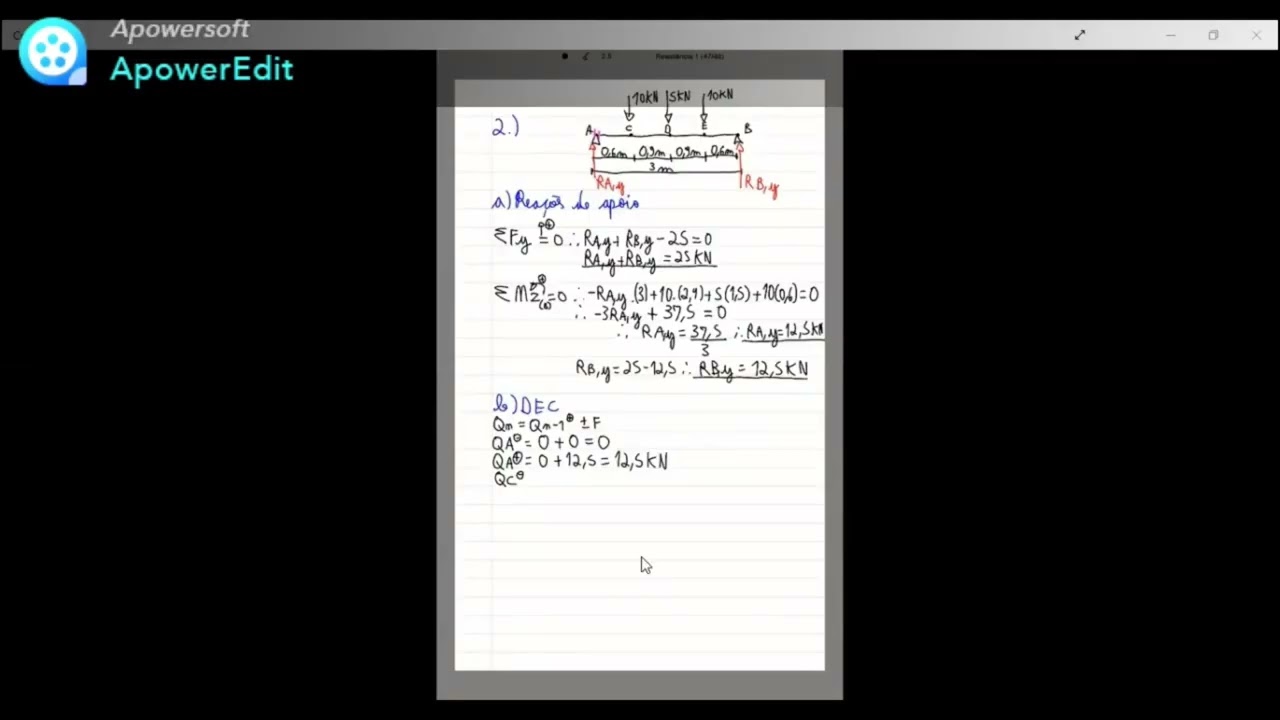 Apowersoft
ApowerEdit
2.5 Resistência 1 (47Ab)
10KN 5KN 10KN
2.)
A C D E B
0,6m 0,9m 0,9m 0,6m
3m
RA,y RB,y
a) Reações de apoio
ΣFy ↑⊕ = 0 ∴ RA,y + RB,y - 25 = 0
RA,y + RB,y = 25KN
ΣMZ = 0 ∴ -RA,y.(3)+10.(2,4)+5(1,5)+10(0,6)=0
∴ -3RA,y + 37,5 = 0
∴ RA,y = 37,5 ∴ RA,y = 12,5KN
3
RB,y = 25-12,5 ∴ RB,y = 12,5KN
b) DEC
Qn = Qn-1⊕ ± F
QA⊖ = 0 + 0 = 0
QA⊕ = 0 + 12,5 = 12,5KN
QC⊖